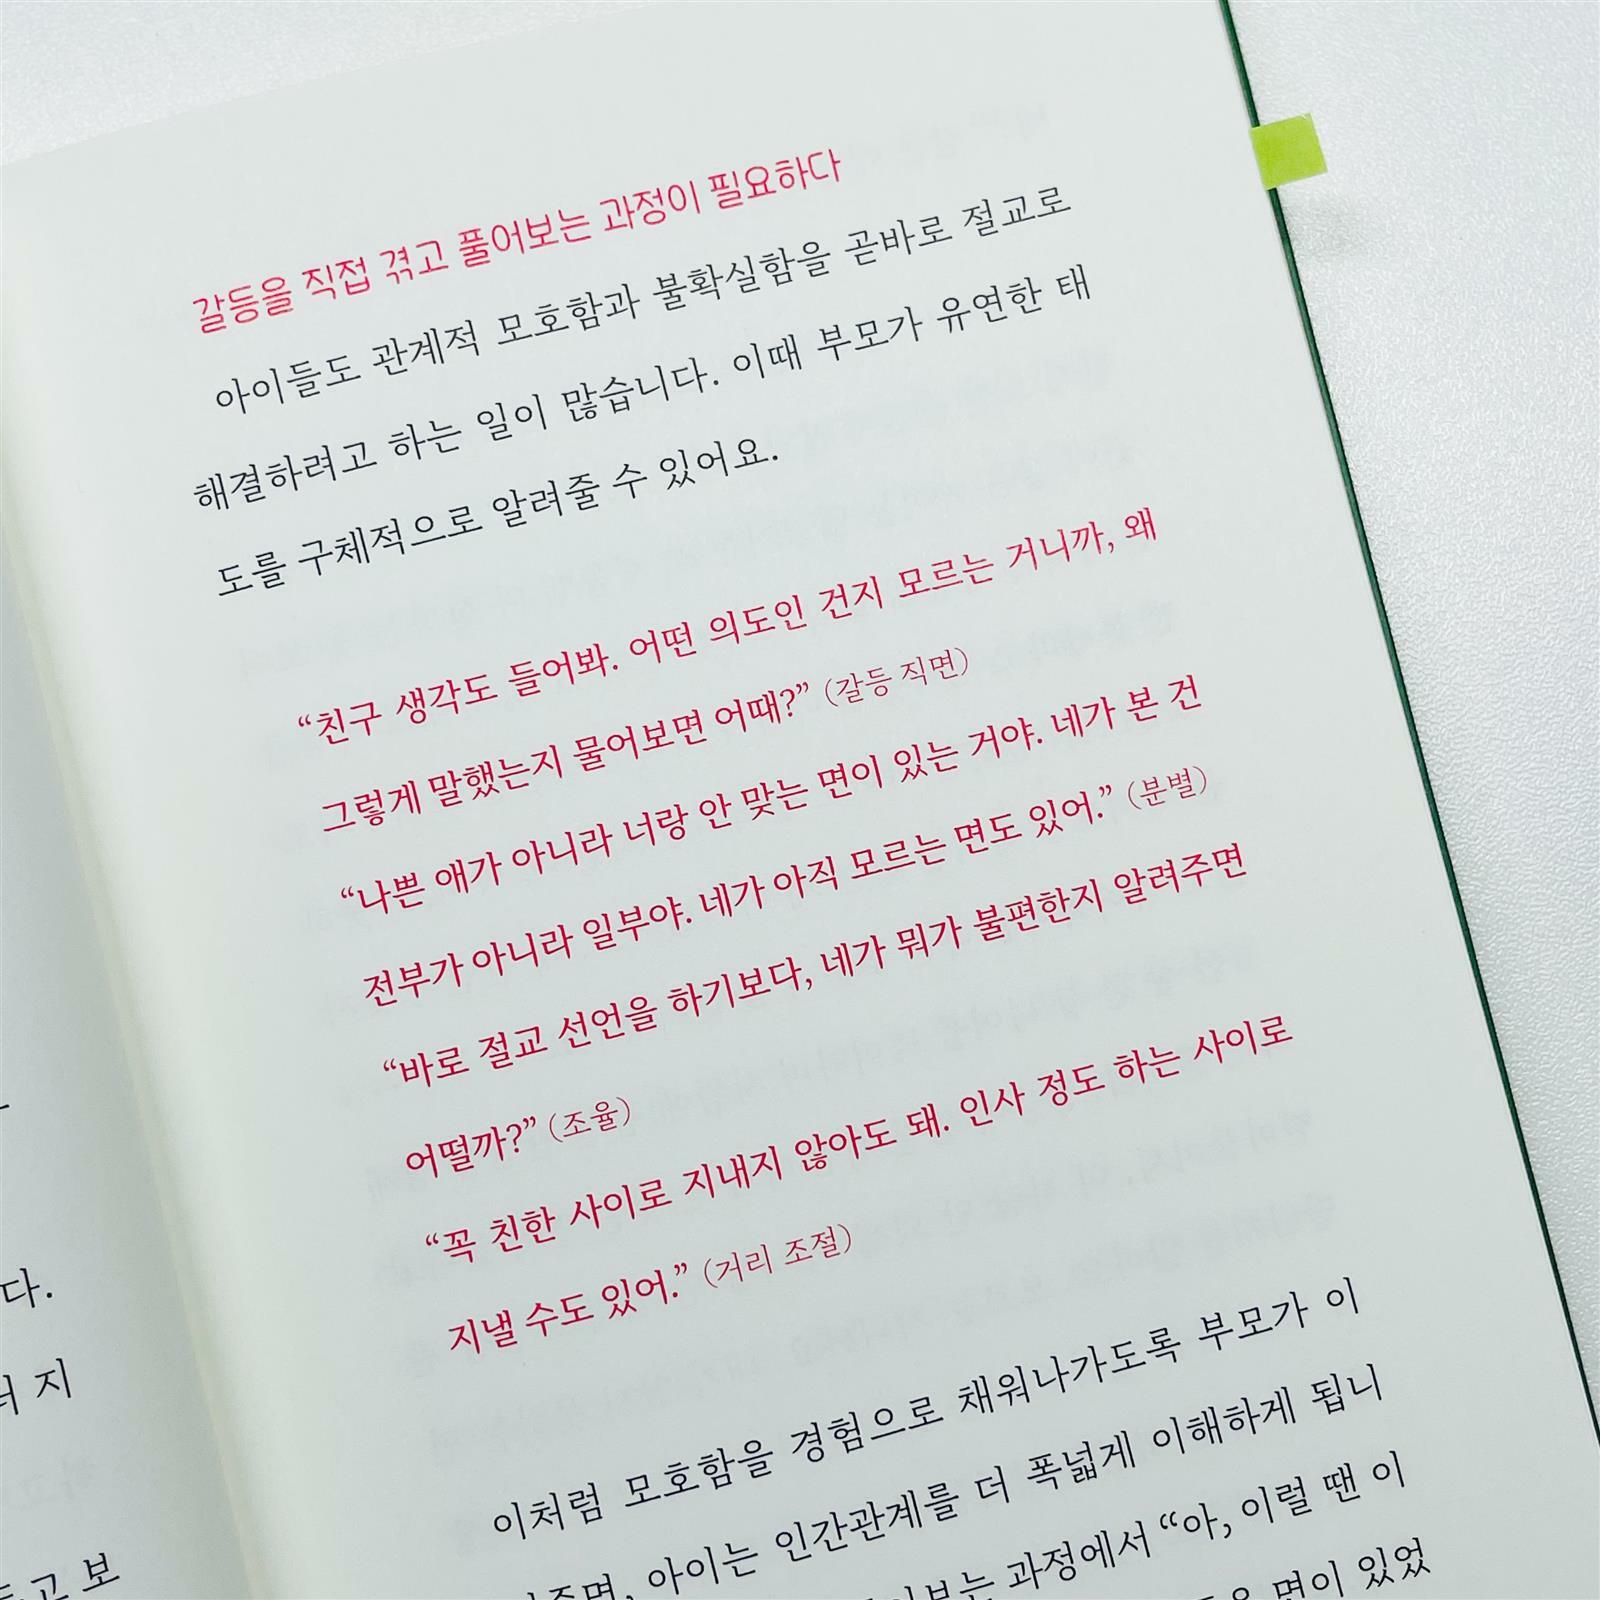 갈등을 직접 겪고 풀어보는 과정이 필요하다
아이들도 관계적 모호함과 불확실함을 곧바로 절교로
해결하려고 하는 일이 많습니다. 이때 부모가 유연한 태
도를 구체적으로 알려줄 수 있어요.
“친구 생각도 들어봐. 어떤 의도인 건지 모르는 거니까, 왜
그렇게 말했는지 물어보면 어때?” (갈등 직면)
“나쁜 애가 아니라 너랑 안 맞는 면이 있는 거야. 네가 본 건
전부가 아니라 일부야. 네가 아직 모르는 면도 있어.” (분별)
“바로 절교 선언을 하기보다, 네가 뭐가 불편한지 알려주면
어떨까?” (조율)
“꼭 친한 사이로 지내지 않아도 돼. 인사 정도 하는 사이로
지낼 수도 있어.” (거리 조절)
이처럼 모호함을 경험으로 채워나가도록 부모가 이
아이는 인간관계를 더 폭넓게 이해하게 됩니
과정에서 “아, 이럴 땐 이
면이 있었
다.
지
보